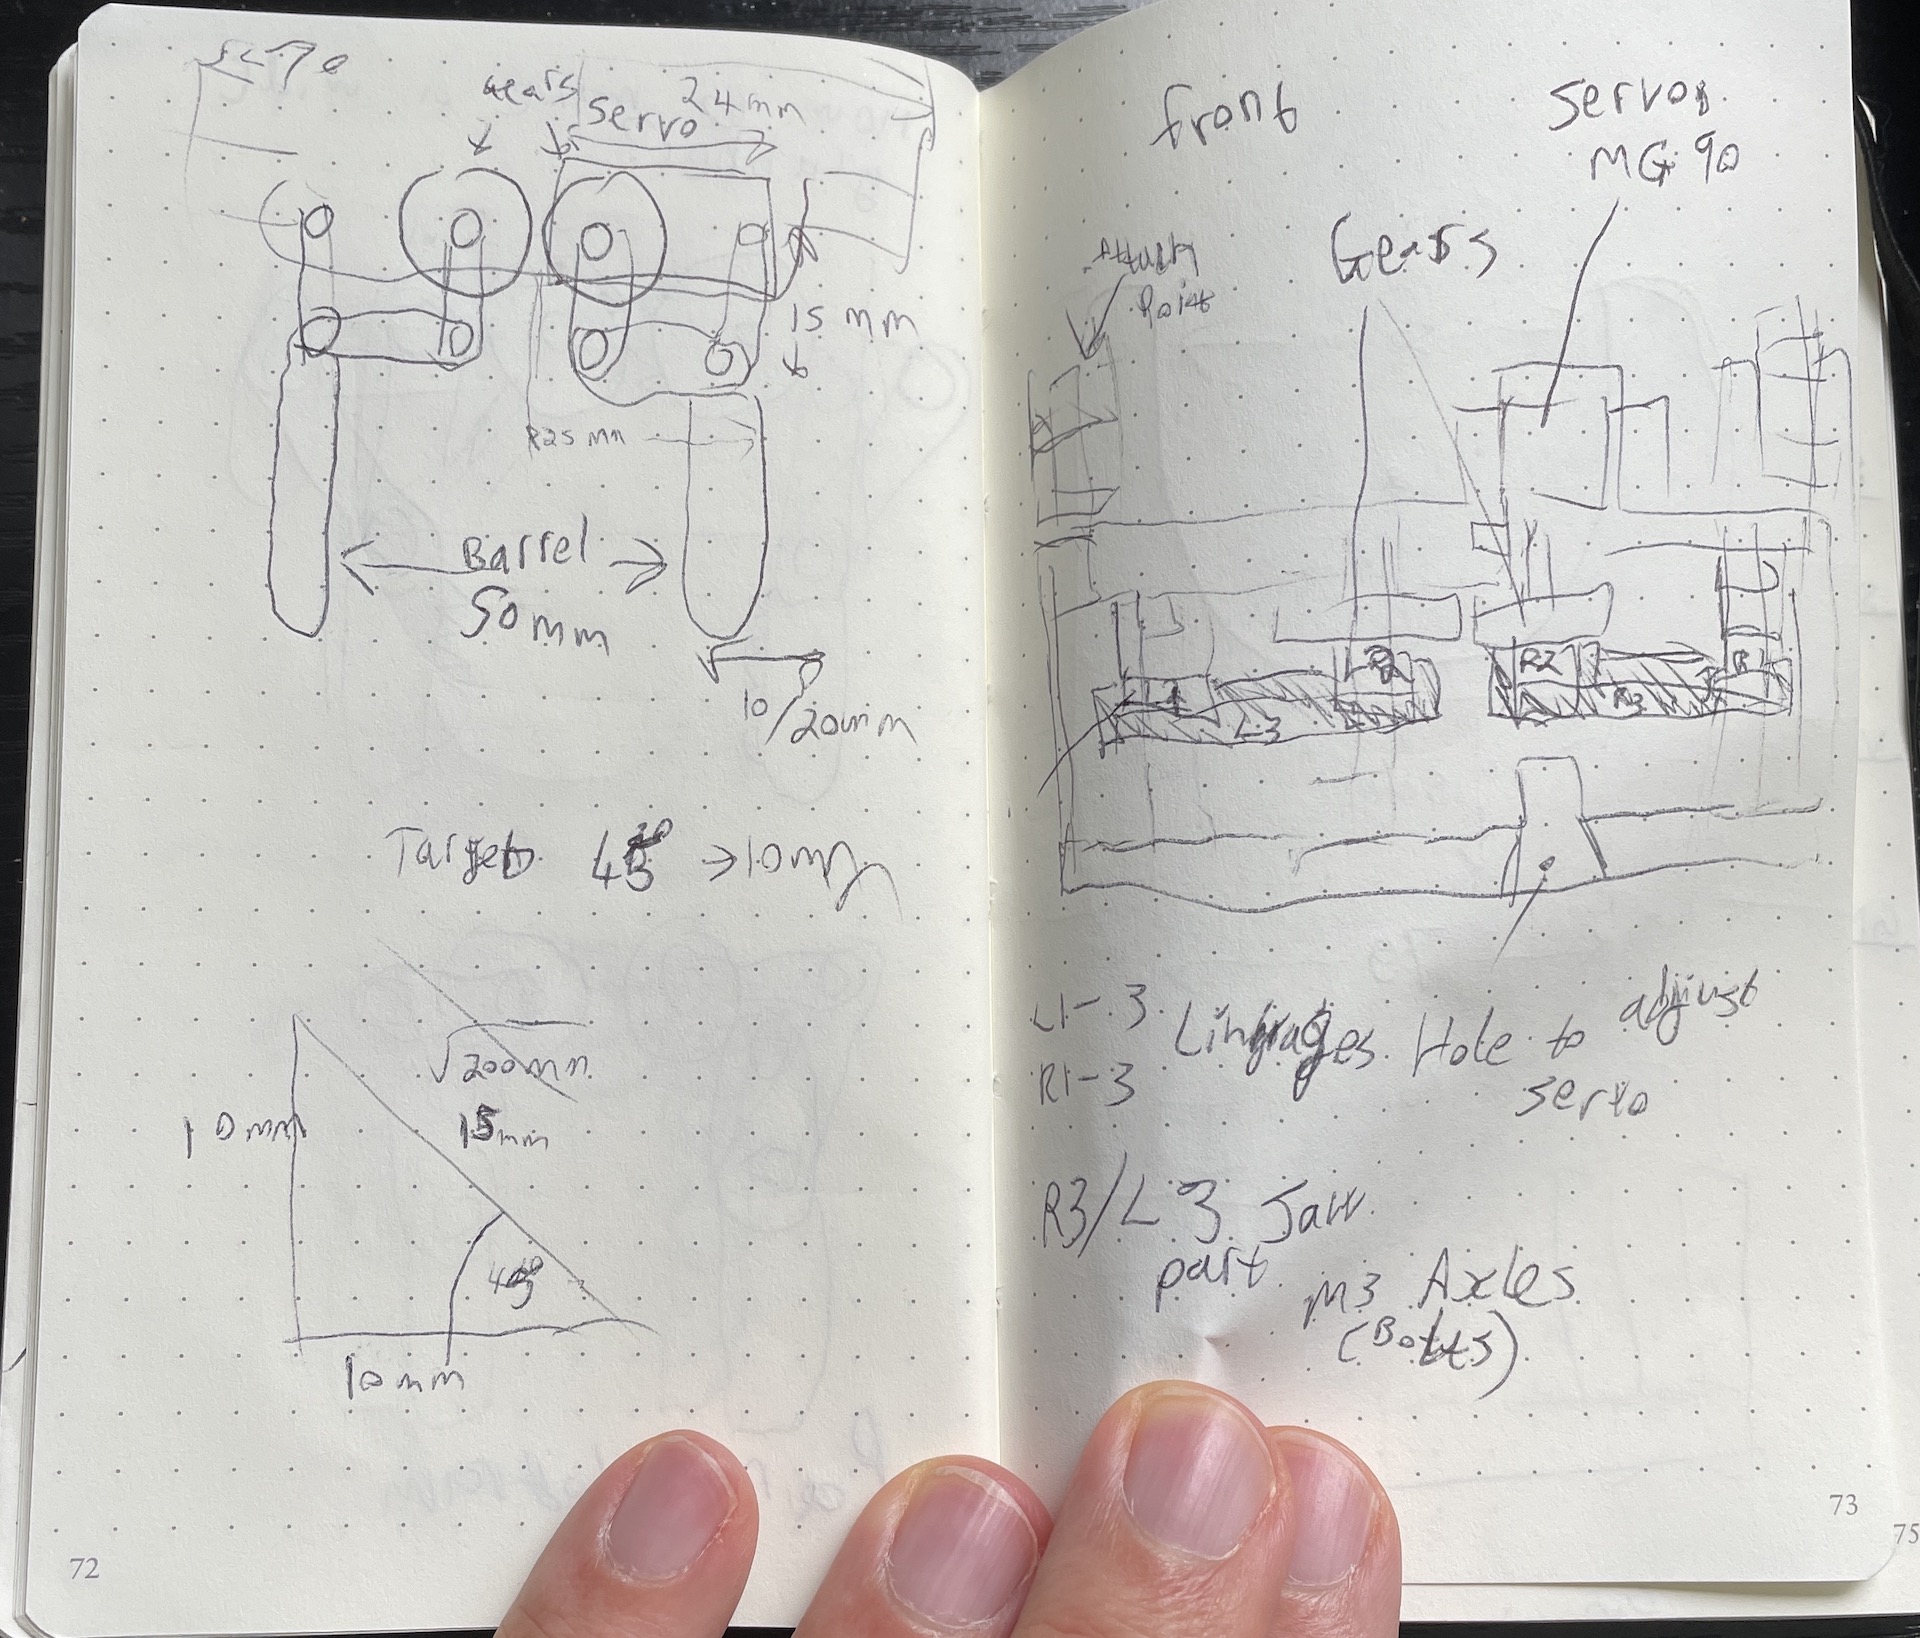 Gears
Servo 24mm
15 mm
R25 mm
Barrel
50mm
10/20mm
Target 45° → 10mm
√200mm
10mm
15mm
45°
10mm
72
front
Servo
MG 90
Gears
Attach
Point
R2
R2
R1
L1
L3
R3
L1-3
R1-3
Linkages
Hole to adjust
servo
R3/L3 Jaw
part
M3 Axles
(Bolts)
73
75